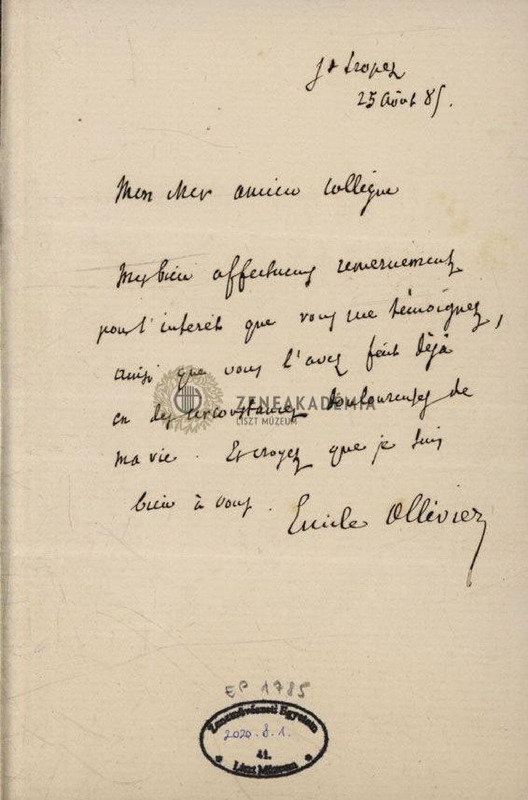 St Tropez
25 Août 85.
Mon cher ancien collègue
Mes bien affectueux remerciements
pour l'intérêt que vous me témoignez,
ainsi que vous l'avez fait déjà
en des circonstances douloureuses de
ma vie. Et croyez que je suis
bien à vous.
Emile Ollivier
ZENEAKADÉMIA
LISZT MÚZEUM
EP 1785
Zeneművészeti Egyetem
2020.8.1.
41.
Liszt Múzeum